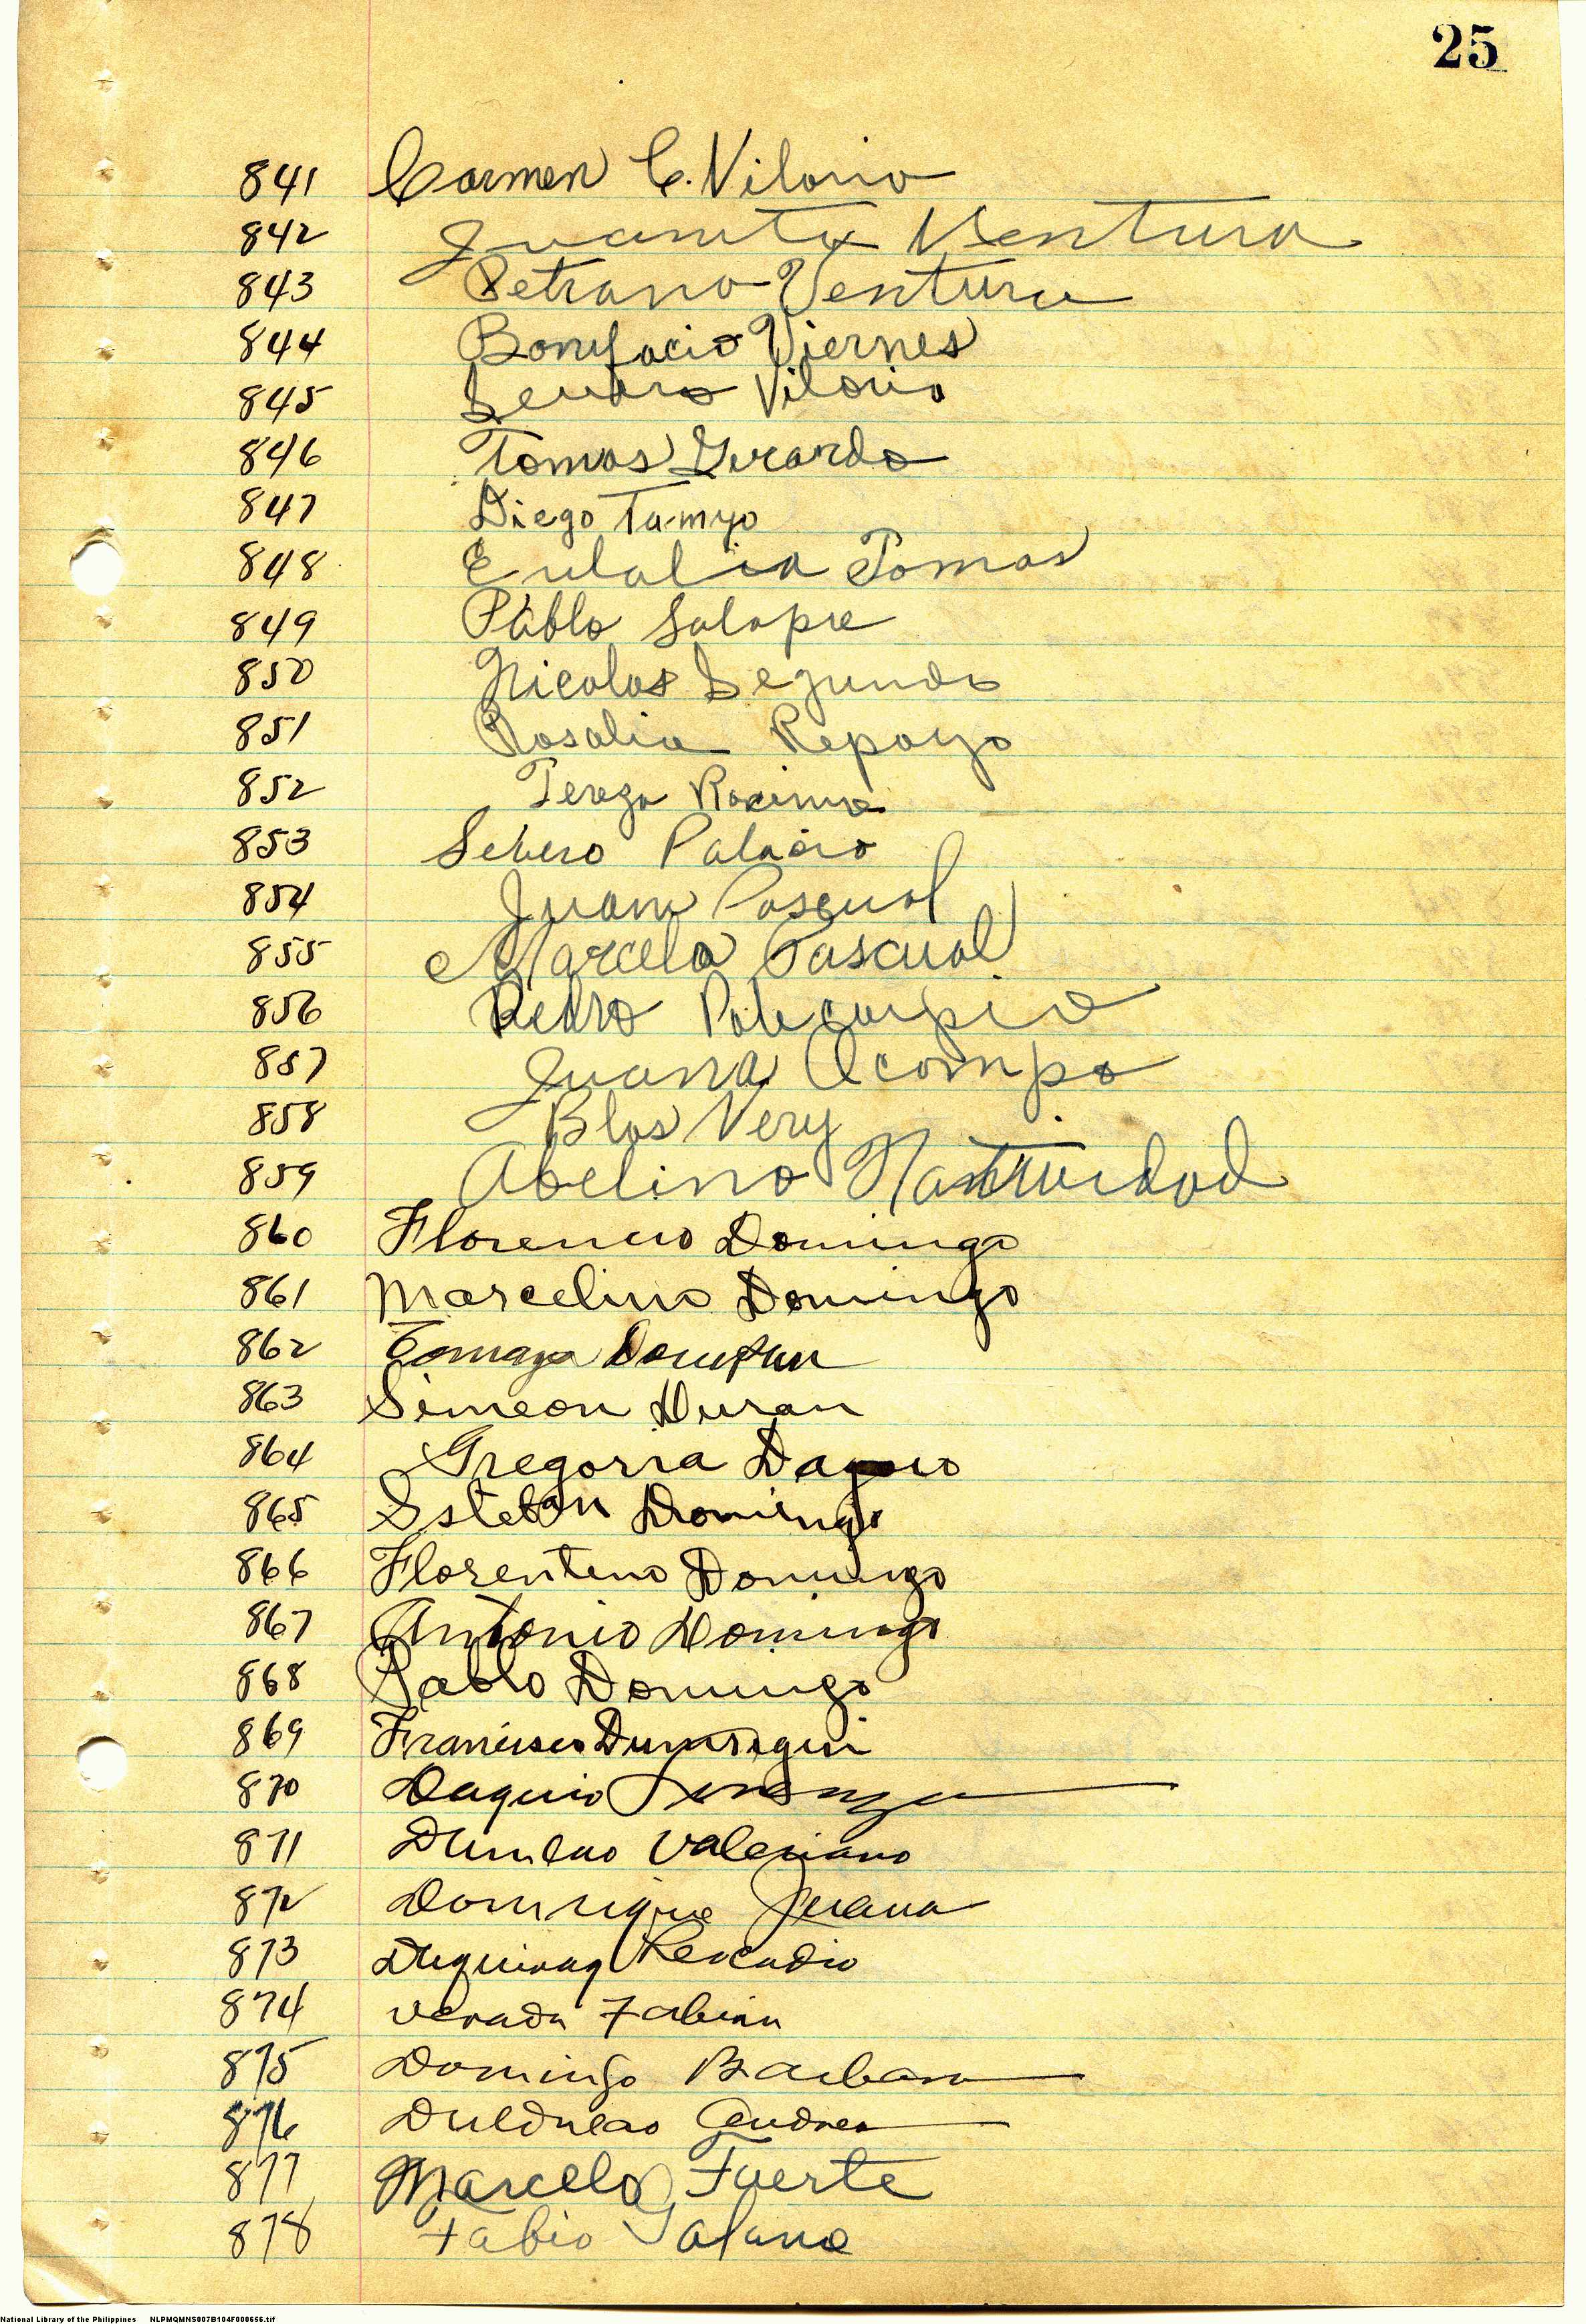 25
841 Carmen C. Viloria
842 Juanita Ventura
843 Petrano Ventura
844 Bonifacio Viernes
845 Viloria
846 Tomas Gerardo
847 Diego Tamyo
848 Eulalia Tomas
849 Pablo Salapre
850 Nicolas Segundo
851 Rosalia Repayo
852 Tereza
853 Sebero Palacio
854 Juan Pascual
855 Marcela Pascual
856 Pedro Policarpio
857 Juana Ocampo
858 Blas Very
859 Abelino
860 Florencio Domingo
861 Marcelino Domingo
862
863 Simeon Duran
864 Gregoria
865 Esteban Domingo
866 Florentino Domingo
867 Antonio Domingo
868 Pablo Domingo
869 Francisco
870 Daquio
871 Dumlao Valeriano
872 Domingue Juana
873
874 Fabian
875 Domingo Barbara
876 Duldulao Andres
877 Marcelo Fuerte
878 Fabio Galano
National Library of the Philippines NLPMQMNS007B104F000656.tif